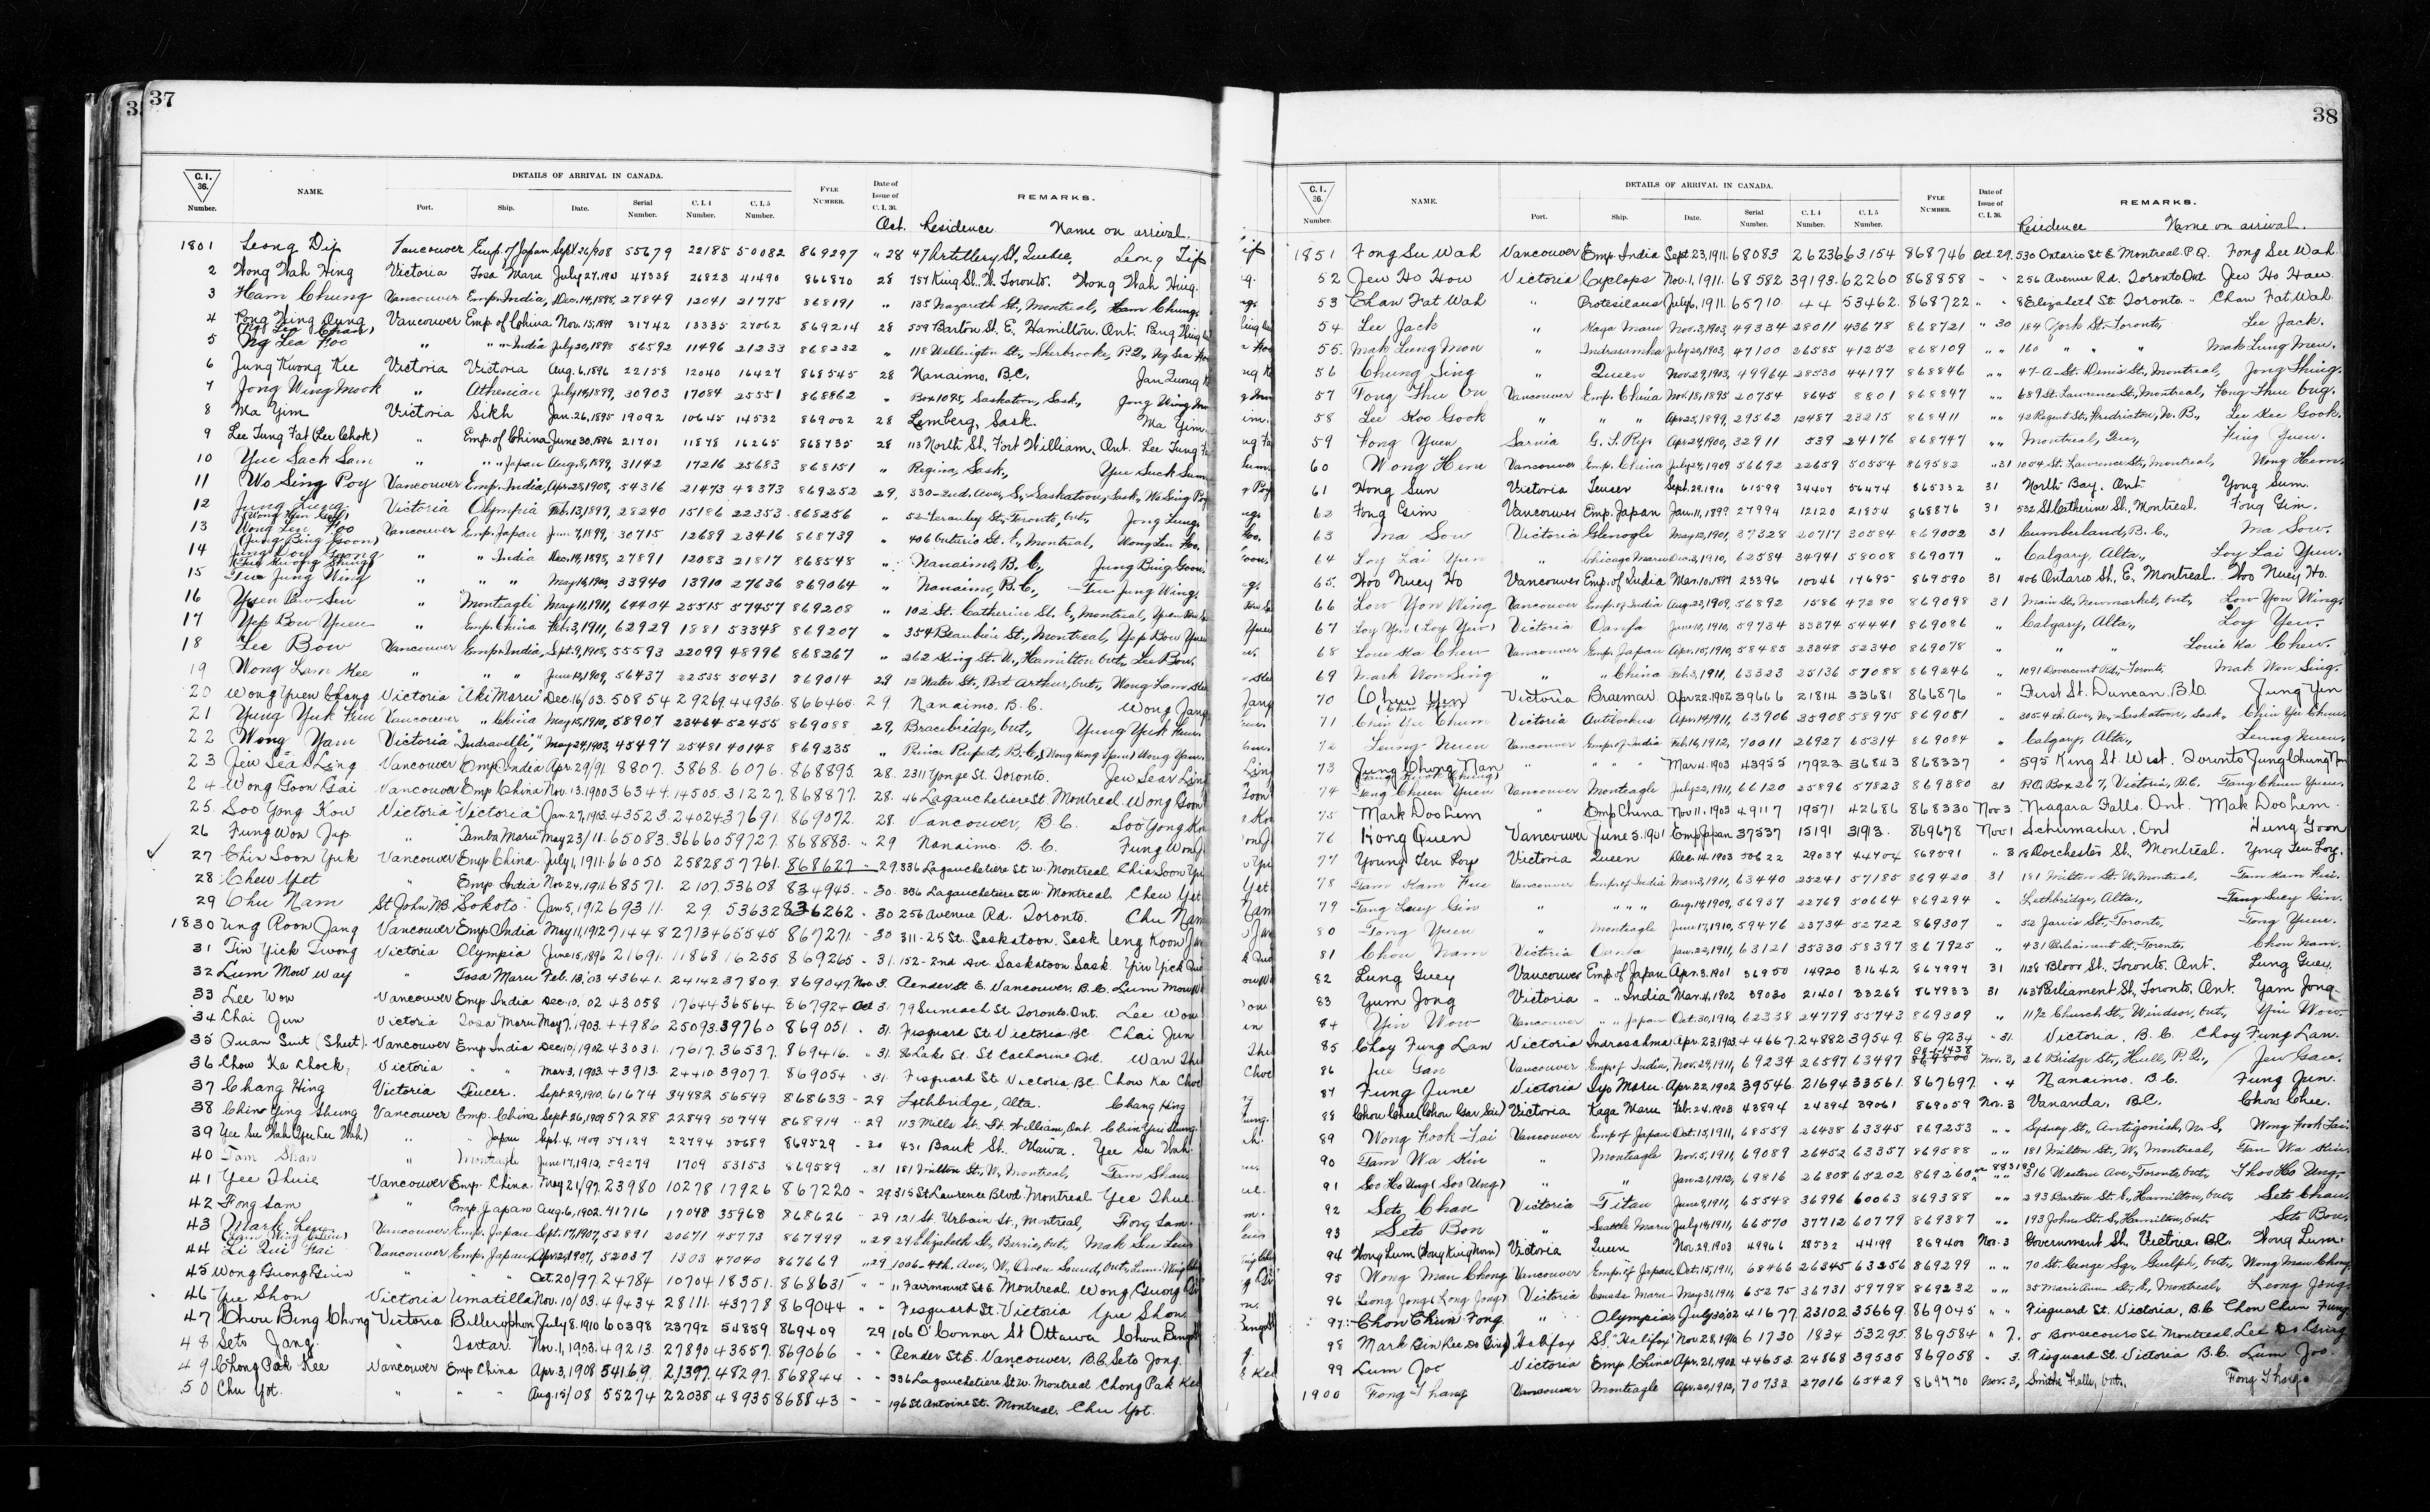 37
C. I. 36. Number. NAME. DETAILS OF ARRIVAL IN CANADA. Port. Ship. Date. Serial Number. C. I. 4 Number. C. I. 5 Number. FYLE NUMBER. Date of Issue of C. I. 36. REMARKS.
Oct. Residence Name on arrival.
1801 Leong Dip Vancouver Emp. of Japan Sept 26/908 55679 22185 50082 869297 " 28 47 Artillery St, Quebec, Leong Tip
2 Wong Wah Hing Victoria Tosa Maru July 27, 190 47338 26823 41490 866870 28 757 King St. W. Toronto. Wong Wah Hing.
3 Ham Chung Vancouver Emp. India, Dec. 14, 1898, 27849 12041 21775 868191 " 135 Nazareth St., Montreal, Ham Chung.
4 Pong Hing Dung Vancouver Emp. of China Nov. 15, 1899 31742 13335 27062 869214 28 559 Barton St. E. Hamilton. Ont.
5 Ng Lea Foo " " " India July 20, 1898 56592 11496 21233 868232 " 118 Wellington St., Sherbrooke, P.Q.,
6 Jung Kwong Kee Victoria Victoria Aug. 6, 1896 22158 12040 16427 868545 28 Nanaimo. B.C.
7 Jong Wing Mook " Athenian July 14, 1899, 30903 17084 25551 868862 " Box 1095, Saskatoon, Sask.,
8 Ma Yim Victoria Sikh Jan. 26, 1895 19092 10645 14532 869002 28 Lemberg, Sask. Ma Yim.
9 Lee Tung Fat (Lee Chok) " Emp. of China June 30, 1896 21701 11878 16265 868735 28 113 North St. Fort William, Ont. Lee Tung
10 Yue Sack Sam " " " Japan Aug. 8, 1899, 31142 17216 25683 868151 " Regina, Sask., Yue Suck Sum
11 Wo Sing Poy Vancouver Emp. India, Apr. 28, 1908, 54316 21473 48373 869252 29, 330-2nd. Ave., S., Saskatoon, Sask., Wo Sing Poy
12 Jung Lung Victoria Olympia Feb. 13, 1899, 28240 15186 22353 868256 " Toronto, Ont., Jong Lung.
13 Wong Len Foo Vancouver Emp. Japan June 7, 1899, 30715 12689 23416 868739 " 406 Ontario St. E., Montreal, Wong Len Foo.
14 " " India Dec. 14, 1898, 27891 12083 21817 868548 " Nanaimo, B.C., Jung Bing Goon.
15 Jung Wing " " " 33940 13910 27636 869064 " Nanaimo, B.C., Jung Wing.
16 " "Monteagle" May 11, 1911, 64404 25515 57457 869208 " 102 St. Catherine St. E., Montreal,
17 Yep Bow Yuen " Emp. China Feb. 3, 1911, 62929 1881 53348 869207 " 354 Beaubien St., Montreal, Yep Bow Yuen
18 Lee Bow Vancouver Emp. India, Sept. 9, 1908, 55593 22099 48996 868267 " 262 King St. W., Hamilton Ont., Lee Bow.
19 Wong Lam Kee " " " June 12, 1909, 56437 22535 50431 869014 29 12 Water St., Port Arthur, Ont.,
20 Wong Yuen Chang Victoria "Aki Maru" Dec. 16/03. 50854 29269. 44936. 866465. 29. Nanaimo. B.C. Wong Jang
21 Yung Yuk Fun Vancouver " China May 15, 1910, 58907 23464 52455 869088 29, Bracebridge, Ont.,
22 Wong Yam Victoria "Indravelli," May 24, 1903, 45497 25481 40148 869235 " Prince Rupert, B.C. (Wong King Yam) Wong Yam.
23 Jew Sear Ling Vancouver Emp India Apr. 29/91. 8807. 3868. 6076. 868895. 28. 2311 Yonge St. Toronto. Jew Sear Ling
24 Wong Goon Gai Vancouver Emp China Nov. 13. 1900 36344. 14505. 31227. 868877. 28. 46 Lagauchetiere St. Montreal Wong Goon
25. Soo Yong Kow Victoria "Victoria" Jan. 27, 1903. 43523. 24024 37691. 869072. 28. Vancouver, B.C. Soo Yong
26 Fung Won Jap. " "Tamba Maru" May 23/11. 65083. 36660 59727. 868883. " 29 Nanaimo. B.C.
27 Chin Soon Yuk Vancouver Emp China. July 1, 1911. 66050 25828 57761. 868627 29. 336 Lagauchetiere St W. Montreal. Chin Soon
28 Chew Yet " Emp India Nov. 24, 1911. 68571. 2107. 53608 834945. " 30. 336 Lagauchetiere St W. Montreal. Chew Yet
29 Chu Nam St John NB "Sokoto." Jan 5, 1912 69311. 29. 53632 836262 - 30 256 Avenue Rd. Toronto. Chu Nam
1830 Ung Koon Jang Vancouver Emp India May 11, 1912 71448 27134 65545 867271. - 30 311-25 St. Saskatoon. Sask Ueng Koon
31 Victoria Olympia June 15, 1896 21691. 11868 16255 869265 - 31. 152-2nd Ave. Saskatoon Sask.
32 Lum Mow Way " Tosa Maru Feb. 13, 03 43641. 24142 37809. 869047. Nov 3. Pender St E. Vancouver. B.C. Lum Mow
33 Lee Wow Vancouver Emp India Dec. 10, 02 43058 17644 36564 867924 Oct 3. Toronto. Ont. Lee Wow
34 Chai Jun Victoria Tosa Maru May 7, 1903. 44986 25093. 39760 869051 " 31. Fisguard St. Victoria BC. Chai Jun
35 Quan Suit (Sheet). Vancouver Emp India Dec 10/1902 43031. 17617. 36537. 869416. " 31. St Catharine Ont.
36 Chow Ka Chock. Victoria " " Mar. 3, 1903. 43913. 24410. 39077. 869054 - 31. Fisguard St. Victoria BC. Chow Ka
37 Chang Hing Victoria Teucer. Sept. 29, 1910. 61674 34482 56549 868633 - 29 Lethbridge, Alta. Chang Hing
38 Ching Ying Shung Vancouver Emp. China Sept. 26, 1909 57288 22849 50744 868914 " 29 113 Mills St. Ft. William, Ont.
39 " " Japan Sept. 4, 1909 57129 22794 50689 869529 - 30 431 Bank St. Ottawa. Yee Su Wah.
40 Tam Shan " Monteagle June 17, 1912, 59279 1709 53153 869589 " 31 181 Milton St., W., Montreal, Tam Shan.
41 Yee Thuie Vancouver Emp. China May 21/97. 23980 10278 17926 867220 - 29 315 St Lawrence Blvd. Montreal
42 Fong Sam " Emp. Japan Aug. 6, 1902. 41716 17048 35968 868626 - 29 121 St. Urbain St., Montreal, Fong Sam.
43 Vancouver Emp. Japan Sept. 17, 1907, 52891 20671 45773 867999 " 29 29 Elizabeth St., Barrie, Ont.,
44 Vancouver Emp. Japan, Apr. 12, 1907, 52037 1303 47040 867669 " 29 1006-4th. Ave., W., Owen Sound, Ont.,
45 Wong Guong " " " Oct. 20/97 24784 10704 18351. 868631 " " 11 Fairmount St E. Montreal. Wong Guong
46 Yue Shon Victoria Umatilla Nov. 10/03. 49434 28111. 43778 869044 " " Fisguard St. Victoria Yue Shon.
47 Chou Bing Chong Victoria Bellerophon July 8. 1910 60398 23792 54859 869409 29 106 O'Connor St Ottawa Chou
48 Seto Jang. " Tartar. Nov. 1, 1903. 49213. 27890 43557. 869066 " " Pender St E. Vancouver. B.C. Seto Jong.
49 Chong Pak Kee Vancouver Emp China Apr. 3, 1908 54169. 21397. 48297. 868844 - - 336 Lagauchetiere St W. Montreal Chong Pak Kee
50 Chu Yot. " " " Aug. 15/08 55274 22038 48935 868843 - - 196 St Antoine St. Montreal. Chu Yot.
38
C. I. 36. Number. NAME. DETAILS OF ARRIVAL IN CANADA. Port. Ship. Date. Serial Number. C. I. 4 Number. C. I. 5 Number. FYLE NUMBER. Date of Issue of C. I. 36. REMARKS.
Residence Name on arrival.
1851 Fong Su Wah Vancouver Emp India Sept. 23, 1911. 68083 26236 63154 868746 Oct. 29. 530 Ontario St E. Montreal. P.Q. Fong See Wah.
52 Jew Ho How Victoria Cyclops Nov. 1, 1911. 68582 39193. 62260 868858 " 256 Avenue Rd. Toronto Ont Jew Ho Haw
53 Chan Fat Wah " Protesilaus July 6, 1911. 65710 44 53462. 868722 " " 8 Elizabeth St. Toronto. " Chan Fat Wah
54 Lee Jack " Kaga Maru Nov. 3, 1903, 49334 28011 43678 868721 " 30 184 York St. Toronto, Lee Jack.
55. Mak Lung Mon " Indrasamha July 20, 1903, 47100 26585 41252 868109 " " 160 " " " Mak Lung Mew.
56 Chung Sing " Queen Nov. 27, 1903, 49964 28530 44197 868846 " " 47-A St. Denis St., Montreal, Jong Shing.
57 Vancouver Emp. China Nov. 18, 1895 20754 8645 8801 868847 " " 689 St. Lawrence St., Montreal,
58 Lee Koo Gook " " " Apr. 25, 1899, 29562 12487 23215 868411 " " 92 Regent St., Fredricton, N.B., Lee Kee Gook.
59 Fong Yuen Sarnia G. T. Ry. Apr. 24, 1900, 32911 539 24176 868747 " " Montreal, Que., Fing Yuen.
60 Wong Hem Vancouver Emp. China July 24, 1909 56692 22659 50554 869582 " 31 1054 St. Lawrence St., Montreal, Wong Hem.
61 Hong Sun Victoria Teucer Sept. 29, 1910 61599 34407 56474 865332 31 North Bay. Ont. Yong Sum.
62 Fong Gim Vancouver Emp. Japan Jan. 11, 1899 27994 12120 21854 868876 31 532 St Catherine St., Montreal. Fong Gim.
63 Ma Sow Victoria Glenogle May 12, 1901, 37328 20717 30584 869002 31 Cumberland, B.C., Ma Sow.
64 Loy Lai Yun " Chicago Maru Dec. 3, 1910, 62584 34941 58008 869077 " Calgary, Alta., Loy Lai Yun.
65. Woo Nuey Ho Vancouver Emp. of India Mar. 10, 1897 23396 10046 17695 869590 31 406 Ontario St., E. Montreal. Woo Nuey Ho.
66 Low Yon Wing Vancouver Emp. of India Aug. 23, 1909, 56892 1586 47280 869098 31 Main St., Newmarket, Ont., Low You Wing.
67 Loy Yin (Loy Yew) Victoria Oanfa June 10, 1910, 59734 33874 54441 869086 " Calgary, Alta., Loy Yew.
68 Louie Ka Chew Vancouver Emp. Japan Apr. 15, 1910, 58485 23348 52340 869078 " " " Louie Ka Chew.
69 Mark Won Sing " " China Feb. 3, 1911, 63323 25136 57088 869246 " 1091 Dovercourt Rd., Toronto, Mak Won Sing.
70 Chew Yen Victoria Braemar. Apr. 22. 1902 39666 21814 33681 866876 " First St. Duncan. B.C. Jung Yen
71 Chin Yu Chum Victoria Antilochus Apr. 14, 1911, 63906 35908 58975 869081 " 305-4th Ave., N., Saskatoon, Sask., Chin Yu Chun.
72 Leung Nuen Vancouver Emp. of India Feb. 16, 1912, 70011 26927 65314 869084 " Calgary, Alta., Leung Nuen.
73 Jung Chong Nan " " " Mar 4. 1903 43955 17923 36843 868337 " 595 King St. West. Toronto
74 Tang Chuen Yuen Vancouver Monteagle July 22, 1911, 66120 25896 57823 869380 31 P.O. Box 267, Victoria, B.C. Tang Chuen Yuen.
75 Mark Doo Lum " Emp China Nov. 11, 1903 49117 19571 42686 868330 Nov 3 Niagara Falls. Ont. Mak Doo Lem.
76 Kong Quen Vancouver June 3. 1901 Emp Japan 37537 15191 31913. 869678 Nov 1 Schumacher. Ont Hung Goon
77 Young Len Loy Victoria Queen Dec. 14. 1903 50622 29037 44704 869591 " 3 Dorchester St., Montreal. Yong Len Loy.
78 Tam Kam Fue Vancouver Emp. of India Mar. 3, 1911, 63440 25241 57185 869420 31 181 Milton St. W. Montreal, Tam Kam
79 Tang Gin " " " " Aug. 14, 1909, 56957 22769 50664 869294 " Lethbridge, Alta., Tang Suey Gin.
80 Tong Yuen " Monteagle June 17, 1910, 59476 23734 52722 869307 " 52 Jarvis St., Toronto, Tong Yuen.
81 Chou Nam Victoria Oanfa Jan. 22, 1911, 63121 35330 58397 867925 " 431 Parliament St., Toronto, Chou Nam.
82 Lung Guey Vancouver Emp of Japan Apr. 3. 1901 36950 14920 31642 867997 31 1128 Bloor St. Toronto. Ont. Lung Guey.
83 Yum Jong Victoria " " India Mar. 4, 1902 39030 21401 33268 867933 31 Parliament St., Toronto, Ont. Yam Jong
84 Yin Wow Vancouver " " Japan Oct. 30, 1910, 62338 24779 55743 869309 " Church St., Windsor, Ont., Yin Wow.
85 Choy Fung Lan Victoria Indrasahma Apr. 23, 1903. 44667. 24882 39549. 869234 " 31. Victoria, B.C. Choy Fung Lan.
86 Jue Gan Vancouver Emp. of India, Nov. 29, 1911, 69234 26597 63497 Nov. 3, 26 Bridge St., Hull, P.Q., Jew Gan.
87 Fung June Victoria Iyo Maru Apr. 22, 1902 39546. 21694 33561. 867697. " 4 Nanaimo. B.C. Fung Jun.
88 Chou Chee (Chou Gar Sie) Victoria Kaga Maru Feb. 24. 1903 43894 24394 39061 869059 Nov. 3 Vananda, B.C. Chow Chee.
89 Wong Fook Tai Vancouver Emp of Japan Oct. 15, 1911, 68559 26438 63345 869253 " " Sydney St., Antigonish, N.S., Wong Fook Tai.
90 Tam Wa Kin " Monteagle Nov. 5, 1911, 69089 26452 63357 869588 " " 181 Milton St., W., Montreal, Tan Wa Kin.
91 Soo Ho Ung (Soo Ung) " " Jan. 21, 1912, 69816 26808 65202 869260 " " 316 Weston Ave., Toronto, Ont., Thoo Ho Ung.
92 Seto Chan Victoria Titan June 9, 1911, 65548 36996 60063 869388 " " 293 Barton St. E., Hamilton, Ont., Seto Chan.
93 Seto Bon " Seattle Maru July 18, 1911, 66570 37712 60779 869387 " " 193 John St. S., Hamilton, Ont., Seto Bon.
94 Wong Lum (Wong King Nom) Victoria Queen Nov. 29, 1903 49966 28532 44199 869400 Nov. 3 Government St. Victoria. B.C. Wong Lum.
95 Wong Man Chong Vancouver Emp. of Japan Oct. 15, 1911, 68466 26345 63256 869299 " " 70 St. George Sq., Guelph, Ont., Wong Man Chong
96 Leong Jong (Kong Jong) Victoria Canada Maru May 31, 1911, 65275 36731 59798 869232 " " 35 Marie Ann St., E., Montreal, Leong Jong.
97. Chon Chun Fong " Olympia July 30, 02 41677. 23102. 35669. 869045 " " Fisguard St. Victoria. B.C. Chon Chun Fung.
98 Mark Gin Halifax SS. "Halifax" Nov. 28, 1910 61730 1834 53295. 869584 " 7. 5 Bonsecours St. Montreal.
99 Lum Joo Victoria Emp. China Apr. 21, 1903. 44653. 24868 39535 869058 " 3. Fisguard St. Victoria B.C. Lum Joo.
1900 Fong Thang Vancouver Monteagle Apr. 20, 1912, 70733 27016 65429 869770 Nov. 3, Smiths Falls, Ont., Fong Thang.